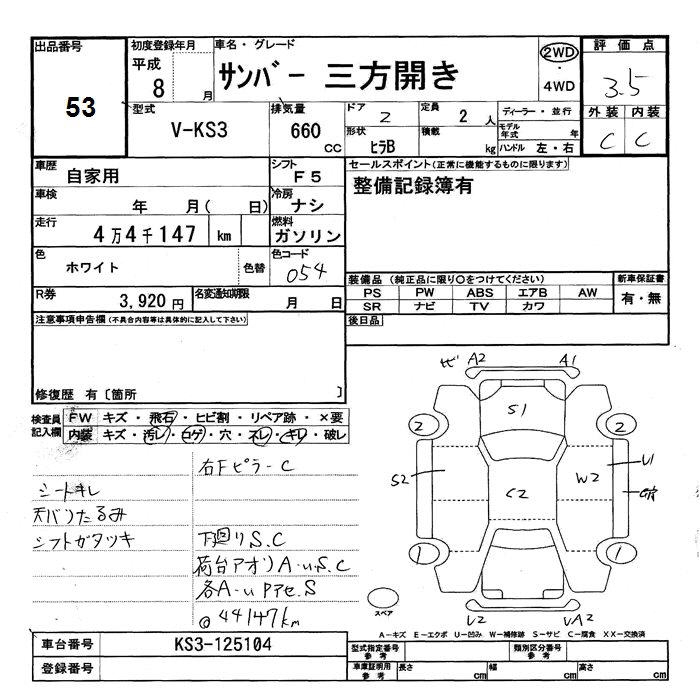 出品番号
53
初度登録年月
平成
8
月
車名・グレード
サンバー 三方開き
2WD
・
4WD
評価点
3.5
外装 内装
C C
型式
V-KS3
排気量
660
CC
ドア
2
形状
ヒラB
定員
2 人
積載
kg
ディーラー・並行
モデル年式 年
ハンドル 左・右
車歴
自家用
シフト
F5
車検
年 月( 日)
冷房
ナシ
走行
4万4千147 km
燃料
ガソリン
色
ホワイト
色替
色コード
054
R券
3,920円
名変通知期限
月 日
セールスポイント(正常に機能するものに限ります)
整備記録簿有
装備品(純正品に限り○をつけてください)
PS PW ABS エアB AW
SR ナビ TV カワ
新車保証書
有・無
後日品
注意事項申告欄(不具合内容等は具体的に記入して下さい)
修復歴 有〔箇所 〕
検査員記入欄
FW キズ・飛石・ヒビ割・リペア跡・×要
内装 キズ・汚レ・コゲ・穴・ネレ・キレ・破レ
右Fピラ-C
シートキレ
天バリたるみ
シフトガタツキ
下廻りS.C
荷台アオリA・u.S.C
各A-uアセ.S
@44147km
A2 A1
S1
2 2
S2 C2 W2 U1
1 1
U2 UA2
スペア
A-キズ E-エクボ U-凹み W-補修跡 S-サビ C-腐食 XX-交換済
車台番号
KS3-125104
登録番号
型式指定番号
参考
類別区分番号
参考
車庫証明用
参考
長さ cm
幅 cm
高さ cm